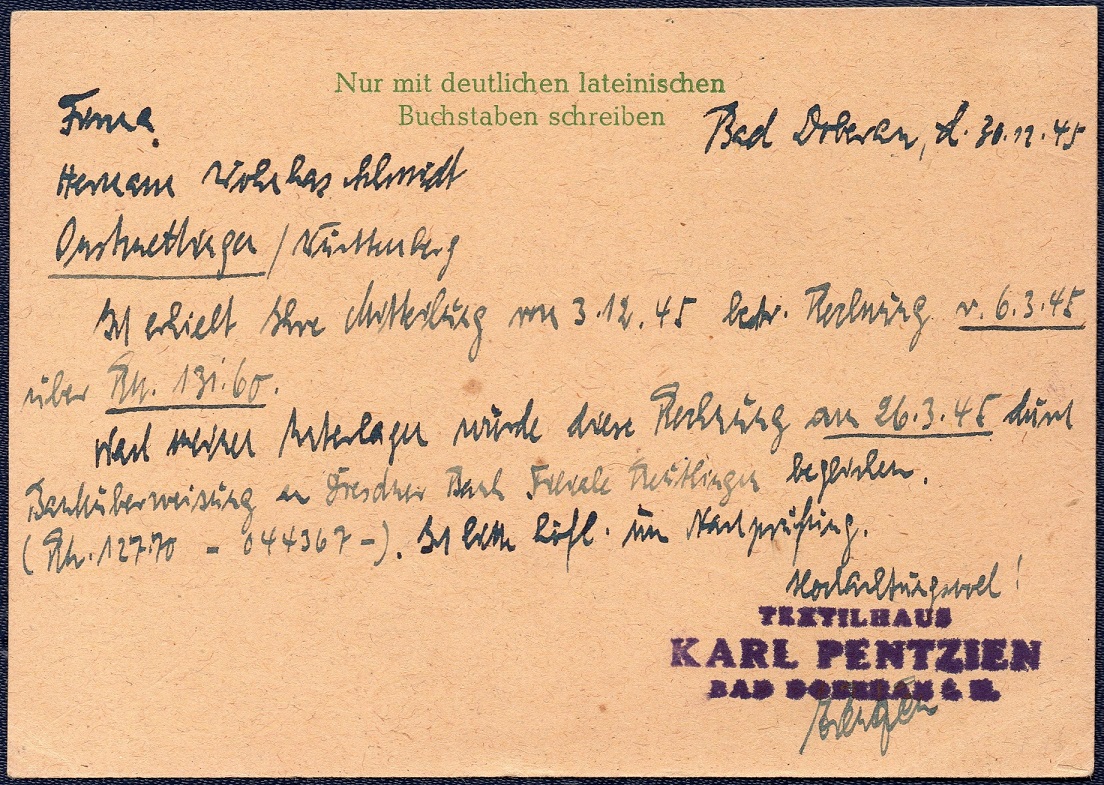 Nur mit deutlichen lateinischen
Buchstaben schreiben
Firma
Bad Doberan, d. 30.12.45
Hermann Schmidt
Onstmettingen / Württemberg
Ich erhielt Ihre Mitteilung vom 3.12.45 betr. Rechnung v. 6.3.45
über RM. 131.60.
Nach meinen Unterlagen wurde diese Rechnung am 26.3.45 durch
Banküberweisung an Dresdner Bank Filiale Reutlingen beglichen.
(RM. 127.70 - 044367-). Ich bitte höfl. um Nachprüfung.
Hochachtungsvoll!
TEXTILHAUS
KARL PENTZIEN
BAD DOBERAN i. M.